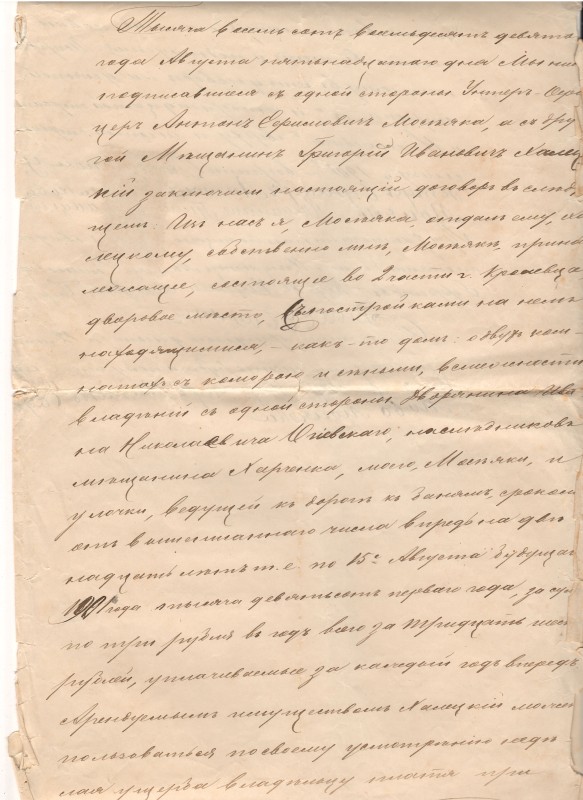 Тысяча восемь сотъ восемьдесятъ девято
года Августа пятьнадцатаго дня Мы ни
подписавшіеся съ одной стороны Унтеръ-Офи
церъ Антонъ Ефимовичъ Мосьпяка, а съ дру
гой Мѣщанинъ Григорій Ивановичъ Халец
кій заключили настоящій договоръ въ слѣд
щемъ: Изъ насъ я, Мосьпяка, отдалъ ему, Ха
лецкому, собственно мнѣ, Мосьпякѣ, прина
лежащее, состоящее во 2 части г. Кролевца
дворовое мѣсто, съ постройками на немъ
находящимися, - какъ-то домъ: о двухъ ком
натахъ съ коморою и сѣньми, въ смежности
владѣній съ одной стороны Дворянина Ива
на Николаевича Огіевскаго, наслѣдниковъ
мѣщанина Харченка, мого, Мосьпяки, и
улочки, ведущей къ дорогѣ къ банямъ, срокомъ
отъ вышеписаннаго числа впредь на двѣ
надцать лѣтъ т. е. по 15е Августа будущаго
1901 года тысяча девятьсотъ перваго года, за су
по три рубля въ годъ всего за тридцать шес
рублей, уплачиваемые за каждый годъ впередъ
Арендуемымъ имуществомъ Халецкій може
пользоваться по своему усмотрѣнію недѣ
лая ущерба владѣльцу платя при